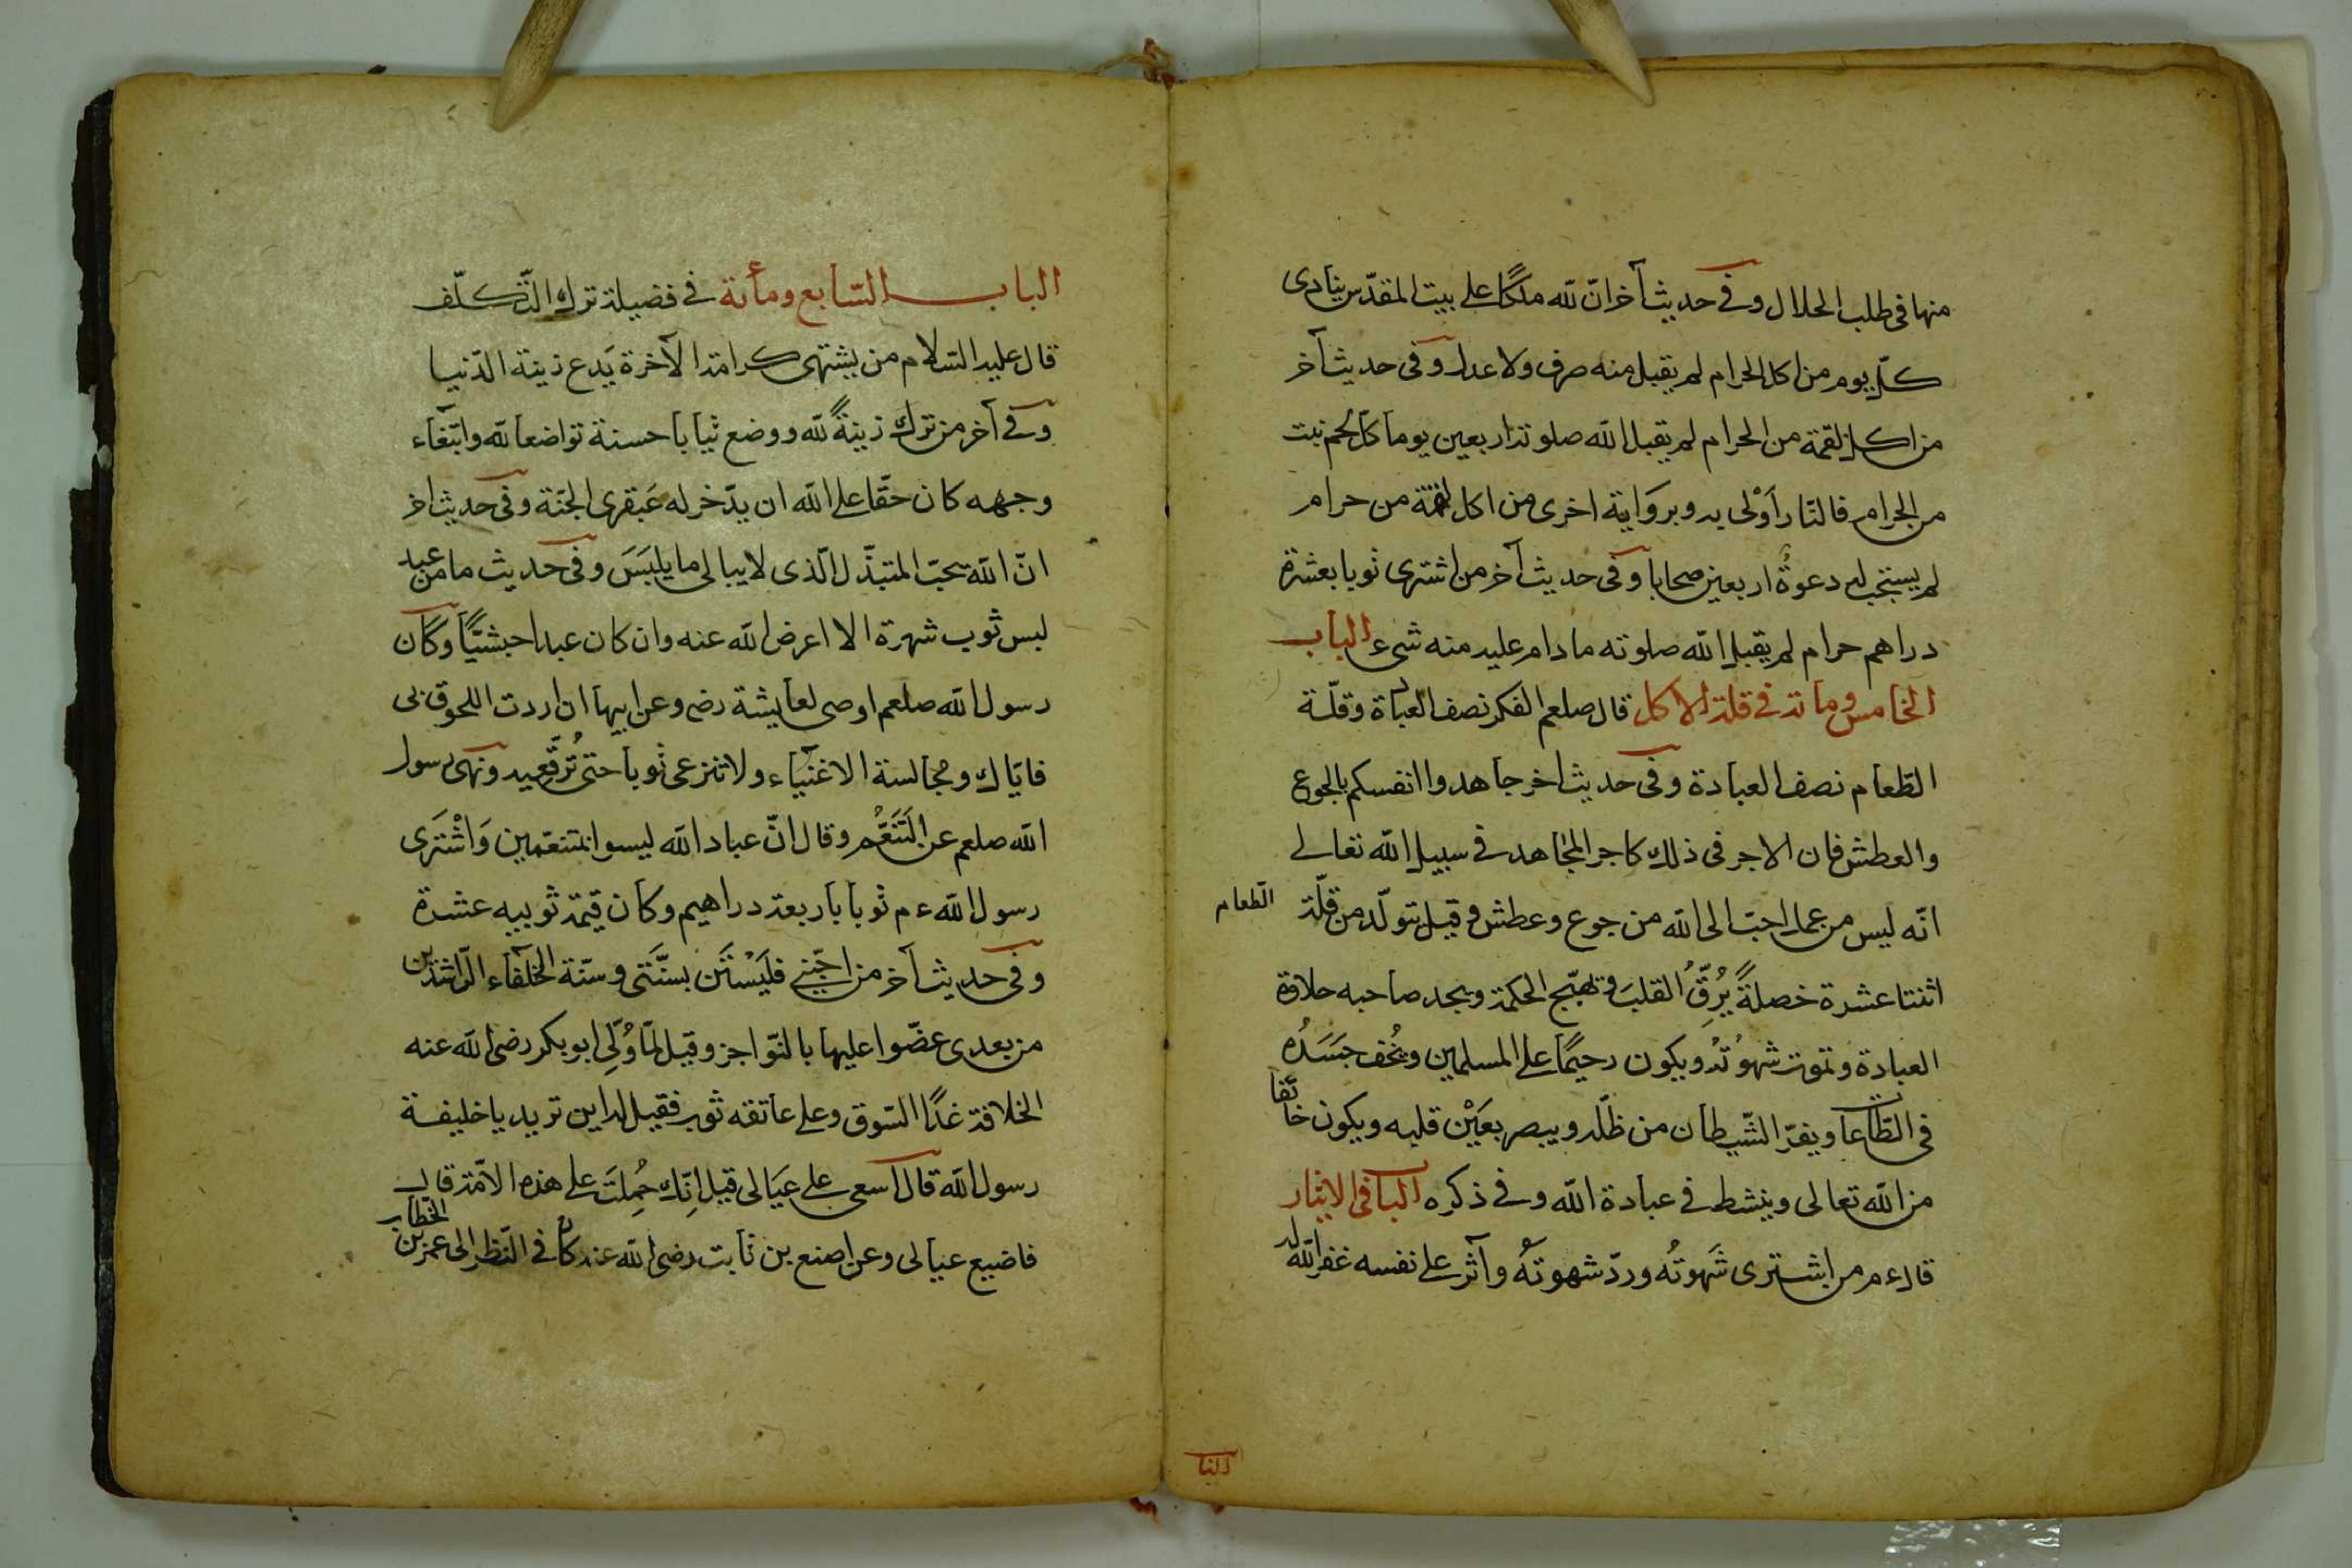 منها فى طلب الحلال وفى حديث آخر انّ لله ملكًا على بيت المقدّس ينادى
كلّ يوم من اكل الحرام لم يقبل منه صرف ولا عدل وفى حديث آخر
من اكل لقمة من الحرام لم يقبل الله صلوته اربعين يوما كل لحم نبت
من الحرام فالنّار اَوْلى به وبروَاية اخرى من اكل لقمة من حرام
لم يستجب له دعوةُ اربعين صحابا وفى حديث آخر من اشترى ثوبا بعشرة
دراهم حرام لم يقبل الله صلوته مادام عليه منه شىء الباب
الخامس ومائة فى قلة الاكل قال صلعم الفكر نصف العباة وقلّة
الطّعام نصف العبادة وفى حديث اخر جاهدوا انفسكم بالجوع
والعطش فان الاجر فى ذلك كاجر المجاهد فى سبيل الله تعالى
انّه ليس من عمل احبّ الى الله من جوع وعطش وقيل تتولّد من قلّة الطعام
اثنتا عشرة خصلةً يُرِقُّ القلبَ وتهيّج الحكمة ويجد صاحبه حلاوة
العبادة وتموت شهوُته ويكون رحيمًا على المسلمين ويخُف جَسَدُه
فى الطّاعا ويفرّ الشّيطان من ظلّه ويبصر بعَيْن قلبه ويكون خائفا
من الله تعالى وينشط فى عبادة الله وفى ذكره البا فى الايثار
قال ء م من اشترى شَهوتُه وردّ شهوتُهُ وآثر على نفسه غفر الله له
البا
الباب السّابع ومأئة فى فضيلة ترك التّكلّف
قال عليه السّلام من يشتهى كرامة الآخرة يَدع زينة الدّنيا
وفى آخر من ترك زينةً لله ووضع ثيابا حسنة تواضعا لله وابتغاء
وجهه كان حقّا على الله ان يدّخر له عَبقرى الجنّة وفى حديث اخر
انّ الله يحبّ المتبذّل الّذى لا يبالى ما يلبَسَ وفى حديث ما من عبد
لبس ثوب شهرة الا اعرض الله عنه وان كان عبدا حبشيًّا وكان
رسول الله صلعم اوصى لعايشة رض وعن ابيها ان اردت اللحوق بى
فايّاك ومجالسة الاغنيآء ولا تنزعى ثوبا حتى تُرقّعيه ونهى رسول
الله صلعم عن التَنَعُّم وقال انّ عباد الله ليسوا بمتنعّمين وَاشْتَرى
رسول الله ء م ثوبا باربعة دراهيم وكان قيمة ثوبيه عشرة
وفى حديث آخر من احبّنى فليَسْتَن بسنَّتى وسنّة الخلفآء الرّاشدين
من بعدى عضّوا عليها بالنّواجز وقيل لمّا وُلِّى ابوبكر رضى الله عنه
الخلافة غدًا السّوق وعلى عاتقه ثوب فقيل له اين تريد يا خليفة
رسول الله قال اسعى على عيَالى قيل انِّك حُمِلتَ على هذه الامّة قال
فاضيع عيالى وعن اصنع بن ثابت رضى الله عنه كان فى النّظر الى عمر بن الخطاب